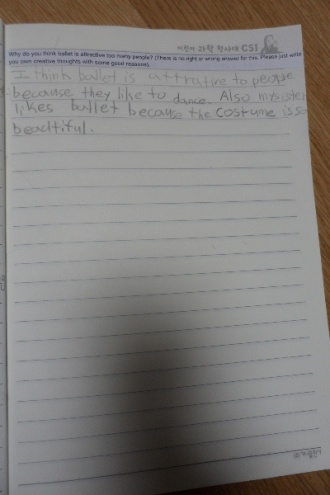 어린이 과학 형사대 CSI
Why do you think ballet is attractive too many people? (There is no right or wrong answer for this. Please just write
you own creative thoughts with some good reasons).
I think ballet is attrative to people
because they like to dance. Also my sister
likes ballet because the costume is so
beautiful.